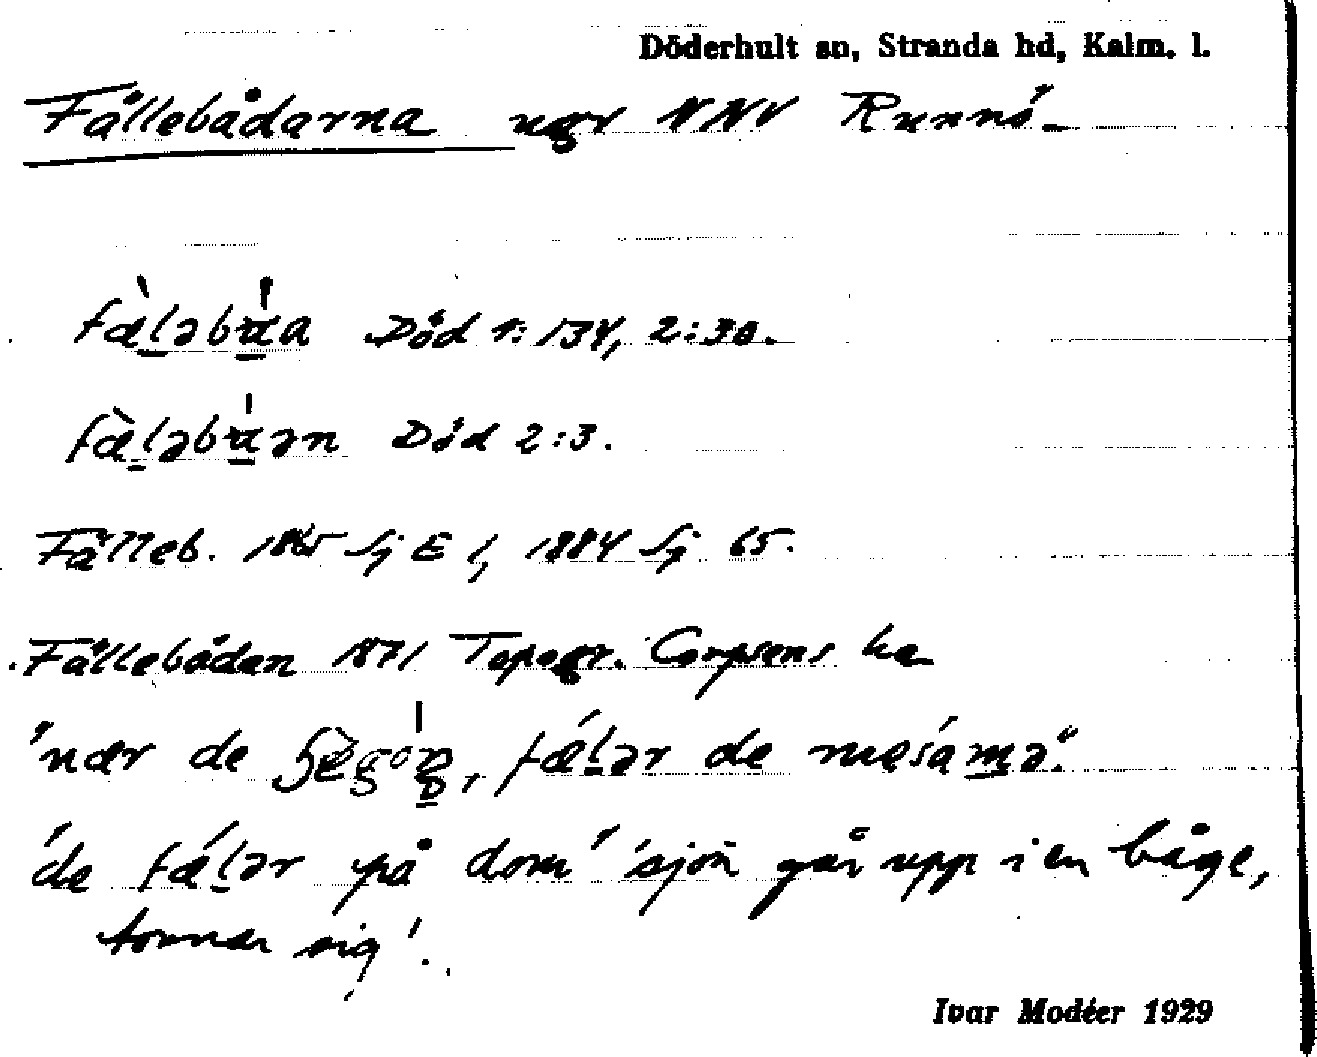 Döderhult sn, Stranda hd, Kalm. l.
Fållebådarna ugr NNV Runnö
fæ̀ləbɑ́a Död 1:134, 2:30.
fæ̀ləbɑ́ən Död 2:3.
Fålleb. 1865 Sj E 1, 1884 Sj 65.
Fållebådan 1871 Topogr. Corpsens ka
"nær de fǽlər de
"de fǽlər på dom" 'sjön går upp i en båge,
tornar sig'.
Ivar Modéer 1929